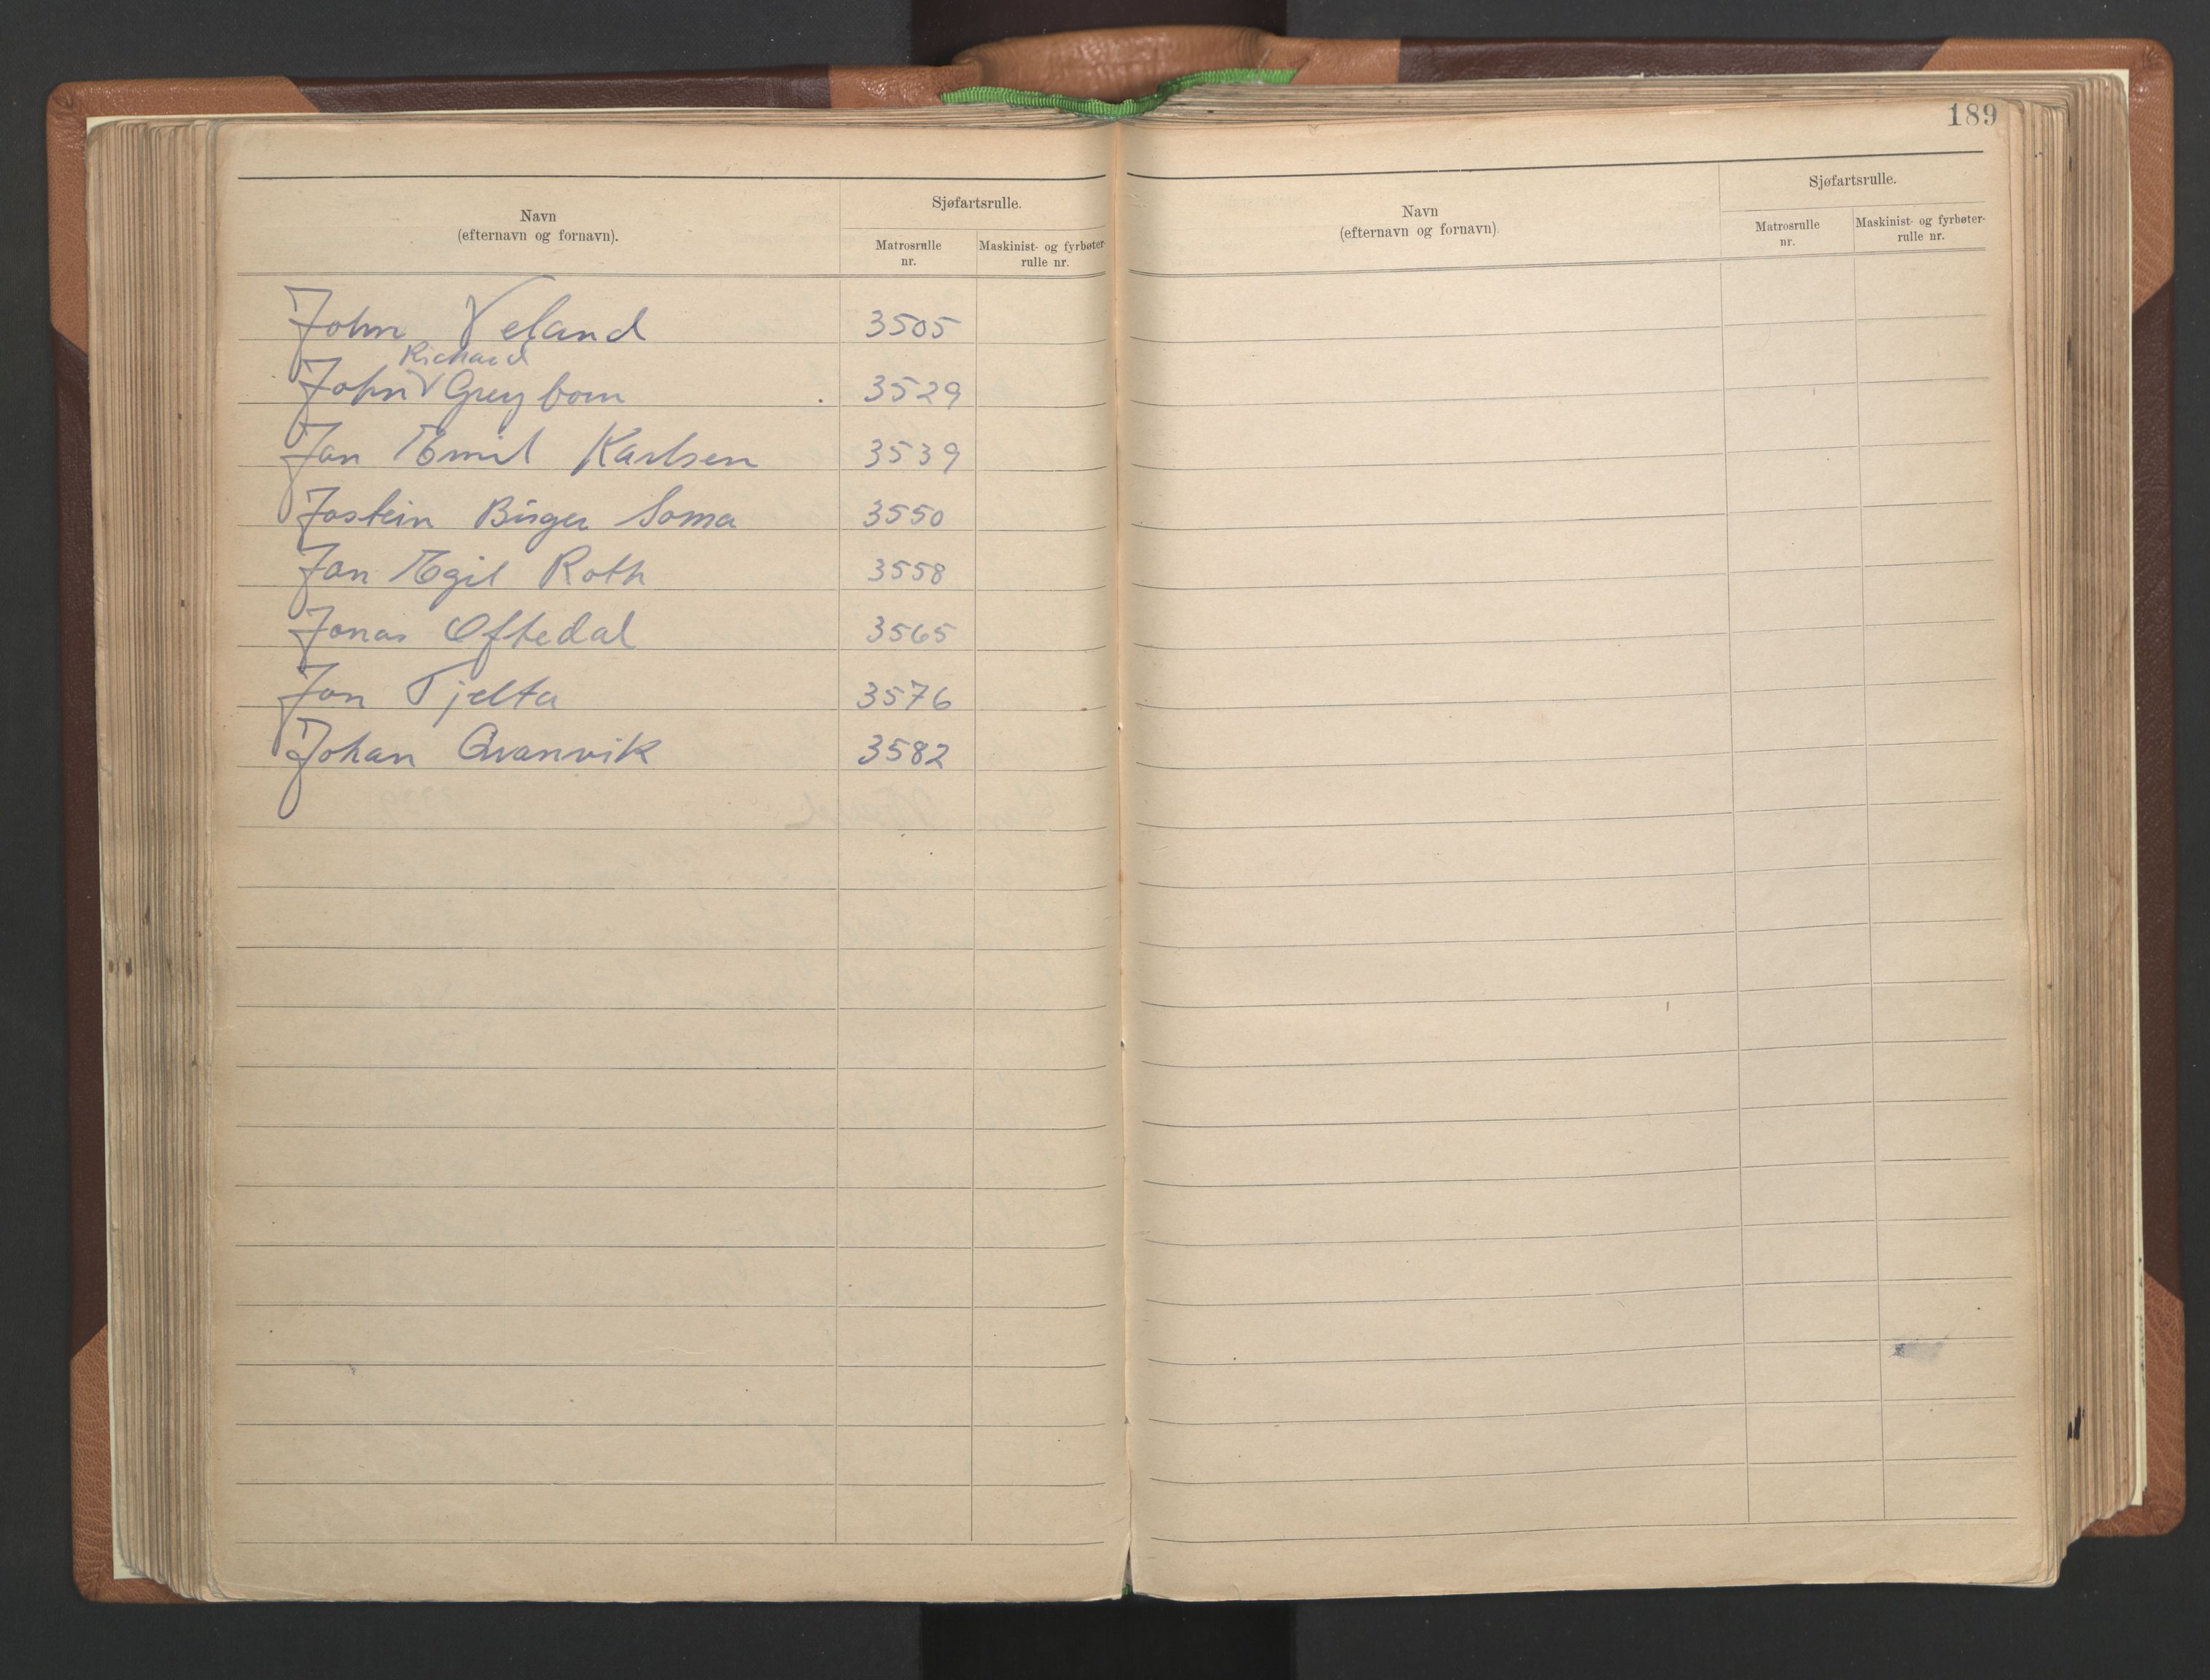 Navn
(efternavn og fornavn).
Sjøfartsrulle.
Matrosrulle
nr.
Maskinist- og fyrbøter-
rulle nr.
John Veland 3505
Richard
John V Greybom 3529
Jan Emil Karlsen 3539
Jostein Birger Soma 3550
Jan Egil Roth 3558
Jonas Oftedal 3565
Jon Tjelta 3576
Johan Qvanvik 3582
189
Navn
(efternavn og fornavn).
Sjøfartsrulle.
Matrosrulle
nr.
Maskinist- og fyrbøter-
rulle nr.